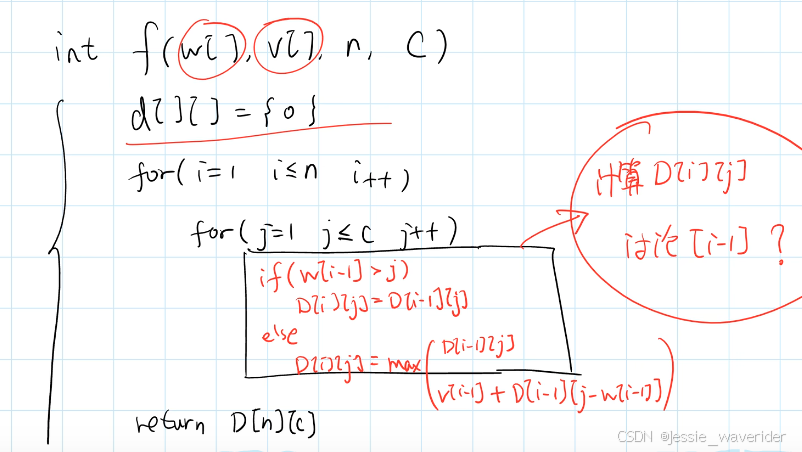 int f(w[], v[], n, C)
d[][] = {0}
for( i=1 i≤n i++)
for( j=1 j≤c j++)
if(w[i-1]>j)
D[i][j]=D[i-1][j]
else
D[i][j]=max(D[i-1][j]
v[i-1]+D[i-1][j-w[i-1]])
return D[n][c]
计算D[i][j]
讨论[i-1]?
CSDN @jessie_waverider